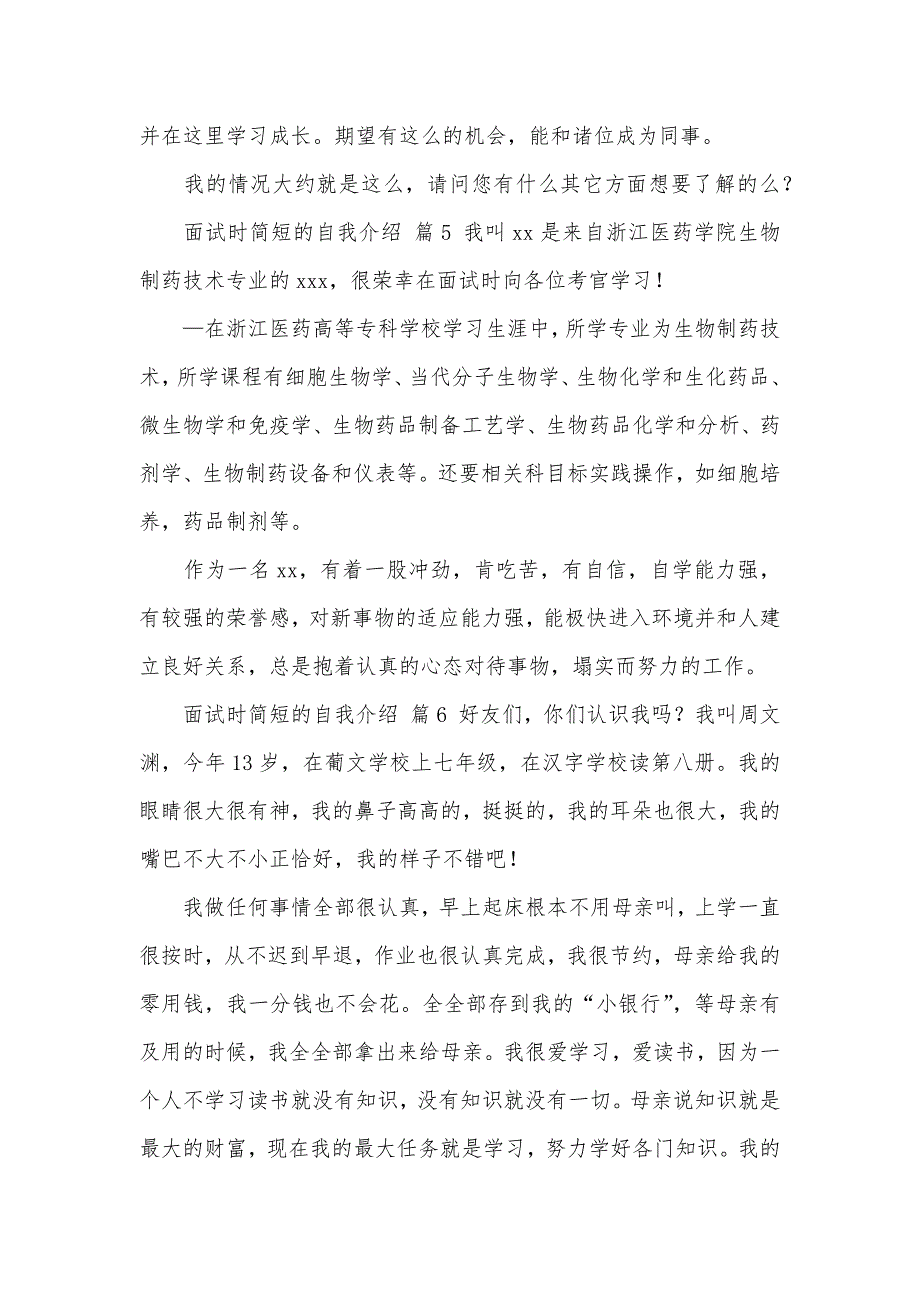 并在这里学习成长。期望有这么的机会，能和诸位成为同事。
我的情况大约就是这么，请问您有什么其它方面想要了解的么？
面试时简短的自我介绍 篇5 我叫xx是来自浙江医药学院生物
制药技术专业的xxx，很荣幸在面试时向各位考官学习！
—在浙江医药高等专科学校学习生涯中，所学专业为生物制药技
术，所学课程有细胞生物学、当代分子生物学、生物化学和生化药品、
微生物学和免疫学、生物药品制备工艺学、生物药品化学和分析、药
剂学、生物制药设备和仪表等。还要相关科目标实践操作，如细胞培
养，药品制剂等。
作为一名xx，有着一股冲劲，肯吃苦，有自信，自学能力强，
有较强的荣誉感，对新事物的适应能力强，能极快进入环境并和人建
立良好关系，总是抱着认真的心态对待事物，塌实而努力的工作。
面试时简短的自我介绍 篇6 好友们，你们认识我吗？我叫周文
渊，今年13岁，在葡文学校上七年级，在汉字学校读第八册。我的
眼睛很大很有神，我的鼻子高高的，挺挺的，我的耳朵也很大，我的
嘴巴不大不小正恰好，我的样子不错吧！
我做任何事情全部很认真，早上起床根本不用母亲叫，上学一直
很按时，从不迟到早退，作业也很认真完成，我很节约，母亲给我的
零用钱，我一分钱也不会花。全全部存到我的“小银行”，等母亲有
及用的时候，我全全部拿出来给母亲。我很爱学习，爱读书，因为一
个人不学习读书就没有知识，没有知识就没有一切。母亲说知识就是
最大的财富，现在我的最大任务就是学习，努力学好各门知识。我的